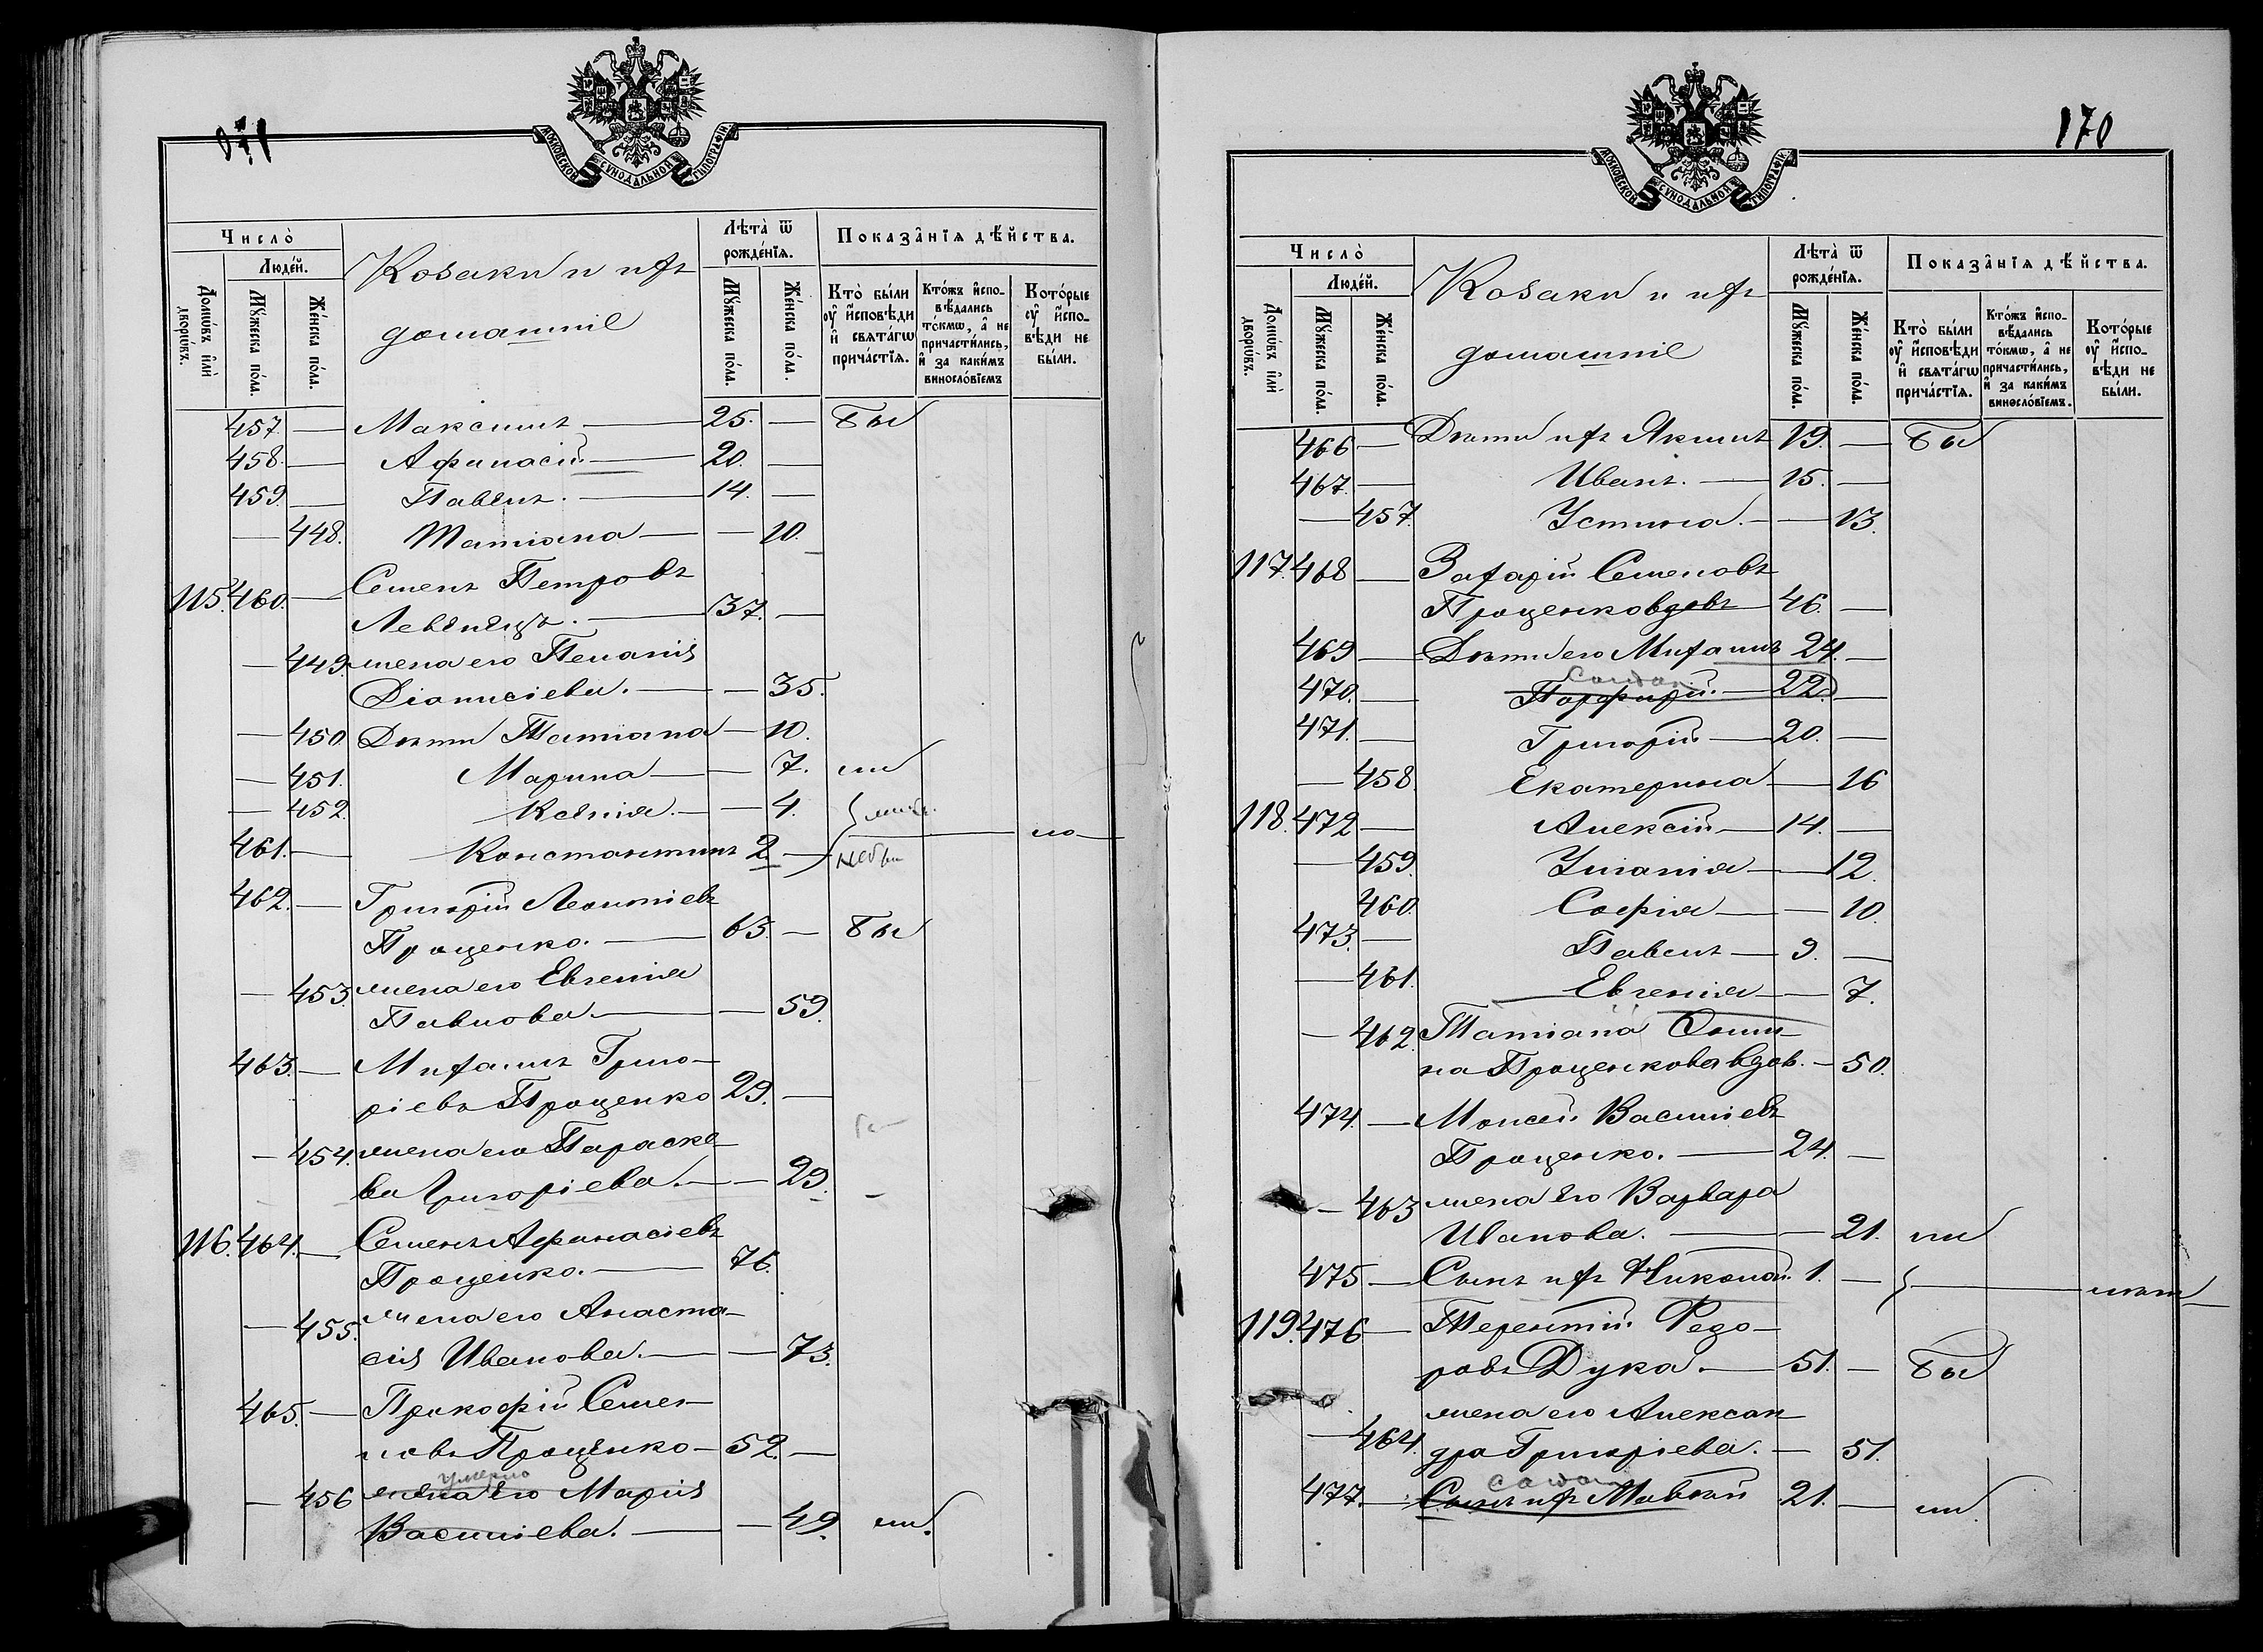 МОСКОВСКОЙ СУНОДАЛЬНОЙ ТИПОГРАФІИ
Число̀
Людéй.
Домѡ́въ и҆лѝ дворѡ́въ.
Мꙋ́жеска по́ла.
Же́нска по́ла.
Козаки и ихъ
домашніе
Лѣта̀ ѿ рождéнїѧ.
Мꙋ́жеска по́ла.
Же́нска по́ла.
Показа̑нїѧ дѣ́йства.
Кто̀ бы́ли ᲂу҆ и҆́сповѣди и҆ свѧта́гѡ прича́стїѧ.
Кто́жъ и҆сповѣ́дались то́кмѡ, а҆ не причасти́лись, и҆ за каки́мъ винослóвїемъ
Кото́рые ᲂу҆ и҆́сповѣди не бы́ли.
457. — Максимъ — 25. — бы
458. — Афанасій — 20. —
459. — Павелъ. — 14. —
— 448. Татіана — — 10.
115. 460. — Семенъ Петровъ
Левенецъ. — 37. —
— 449. жена его Пелагія
Діонисіева. — — 35.
— 450. Дѣти Татіана — 10.
— 451. Марина — — 7. ли
— 452. Ксенія. — — 4.
461. — Константинъ 2. —
462. — Григорій Леонтіевъ
Проценко. — 63. — бы
— 453. жена его Евгенія
Павлова. — — 59.
463. — Михаилъ Григо-
ріевъ Проценко 29. —
— 454. жена его Параске-
ва Григоріева. — — 29.
116. 464. — Семенъ Афанасіевъ
Проценко. — 76.
— 455. жена его Анаста-
сія Иванова. — — 73.
465. — Прокофій Семе-
новъ Проценко — 52. —
умерла
— 456 жена его Марія
Василіева. — — 49. ли.
170
МОСКОВСКОЙ СУНОДАЛЬНОЙ ТИПОГРАФІИ
Число̀
Людéй.
Домѡ́въ и҆лѝ дворѡ́въ.
Мꙋ́жеска по́ла.
Же́нска по́ла.
Козаки и ихъ
домашніе
Лѣта̀ ѿ рождéнїѧ.
Мꙋ́жеска по́ла.
Же́нска по́ла.
Показа̑нїѧ дѣ́йства.
Кто̀ бы́ли ᲂу҆ и҆́сповѣди и҆ свѧта́гѡ прича́стїѧ.
Кто́жъ и҆сповѣ́дались то́кмѡ, а҆ не причасти́лись, и҆ за каки́мъ винослóвїемъ.
Кото́рые ᲂу҆ и҆́сповѣди не бы́ли.
466 — Дѣти ихъ Якимъ 19. — бы
467. — Иванъ. — 15. —
— 457. Устина. — — 13.
117. 468 — Захарій Семеновъ
Проценко вдовъ 46. —
469 — Дѣти его Михаилъ 24. —
солдат
470. — Порфирій. — 22. —
471. — Григорій — 20. —
— 458. Екатерина — 16
118. 472 — Алексій — 14. —
— 459. Уліанія — — 12.
460. Софія — — 10.
473. — Павелъ — 9. —
— 461. Евгенія — — 7.
— 462. Татіана Осип-
на Проценкова вдов. — 50.
474. — Моисей Василіевъ
Проценко. — 24. —
— 463 жена его Варвара
Иванова. — — 21. ли
475 — Сынъ ихъ Николай 1. —
119. 476 — Терентій Федо-
ровъ Дука. — 51. — бы
— 464. жена его Алексан-
дра Григоріева. — 51.
солдат
477. — Сынъ ихъ Матвѣй 21. — ли.